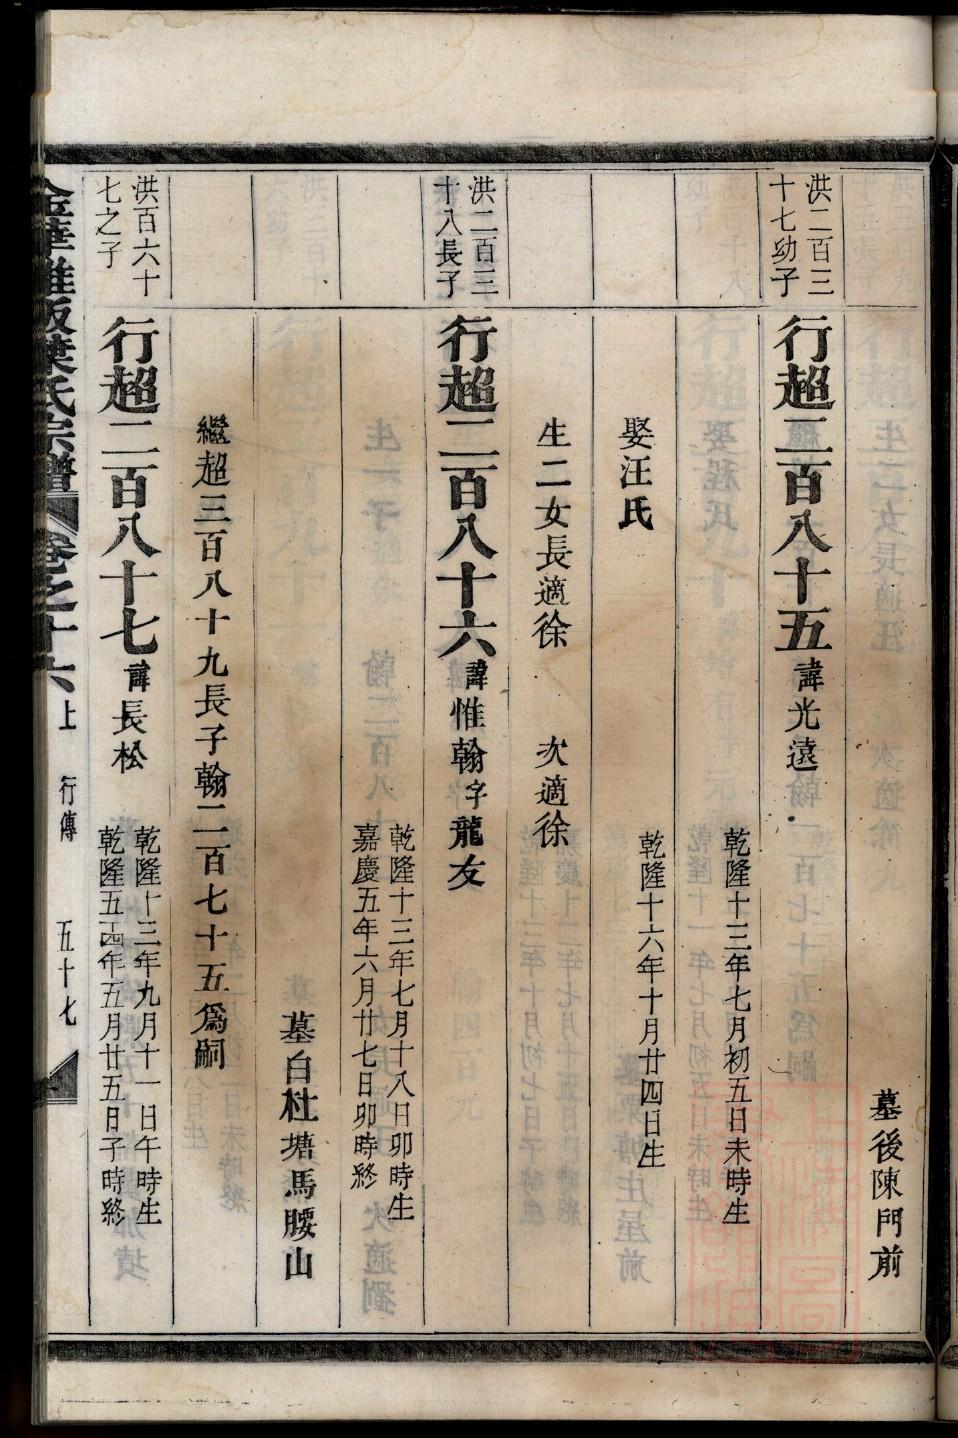 墓後陳門前
洪二百三
十七幼子
行超二百八十五 諱光遠
乾隆十三年七月初五日未時生
娶汪氏
乾隆十六年十月廿四日生
生二女長適徐 次適徐
洪二百三
十八長子
行超二百八十六 諱惟翰字龍友
乾隆十三年七月十八日卯時生
嘉慶五年六月廿七日卯時終
墓白杜塘馬腰山
繼超三百八十九長子翰二百七十五為嗣
洪百六十
七之子
行超二百八十七 諱長松
乾隆十三年九月十一日午時生
乾隆五十四年五月廿五日子時終
葉氏宗譜 卷之十六上 行傳 五十七